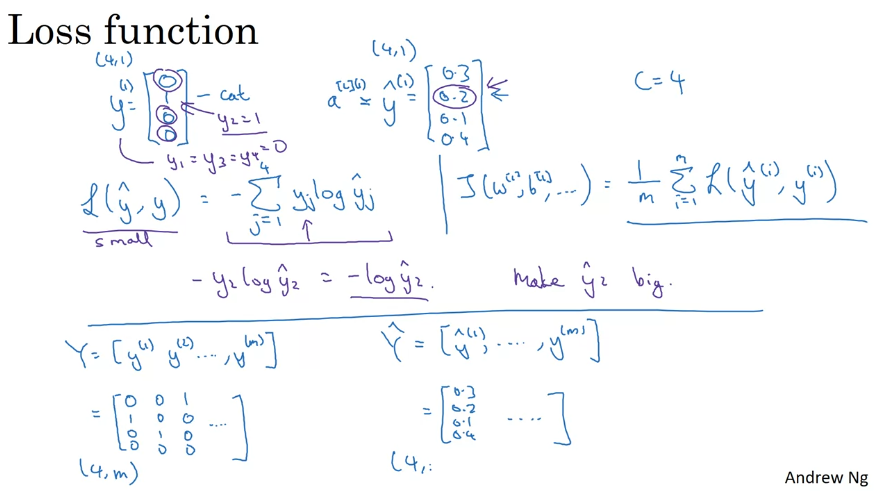 Loss function
(4,1)
y⁽¹⁾ = [0 1 0 0] - cat
y₂ = 1
y₁ = y₃ = y₄ = 0
(4,1)
a^{[L](1)} = ŷ⁽¹⁾ = [0.3 0.2 0.1 0.4]
C = 4
L(ŷ, y) = - Σ_{j=1}^{4} yⱼ log ŷⱼ
small
J(w^{[1]}, b^{[1]}, ...) = 1/m Σ_{i=1}^{m} L(ŷ⁽ⁱ⁾, y⁽ⁱ⁾)
- y₂ log ŷ₂ = - log ŷ₂. Make ŷ₂ big.
Y = [y⁽¹⁾ y⁽²⁾ ...., y⁽ᵐ⁾]
= [0 0 1
1 0 0 ....
0 1 0
0 0 0]
(4,m)
Ŷ = [ŷ⁽¹⁾, ....., y⁽ᵐ⁾]
= [0.3
0.2 .....
0.1
0.4]
(4,
Andrew Ng